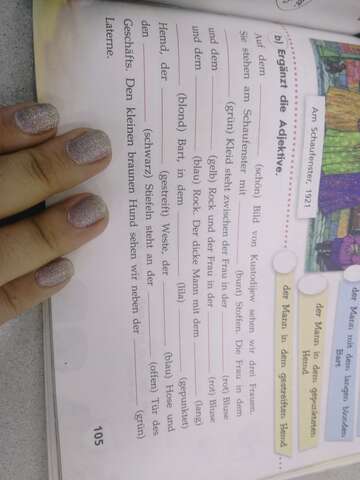 Am Schaufenster, 1921
der Mann mit dem langen blonden
Bart
der Mann in dem gepunkteten
Hemd
der Mann in dem gestreiften Hemd
...
b) Ergänzt die Adjektive.
Auf dem ________ (schön) Bild von Kustodijew sehen wir drei Frauen.
Sie stehen am Schaufenster mit ________ (bunt) Stoffen. Die Frau in dem
________ (grün) Kleid steht zwischen der Frau in der ________ (rot) Bluse
und dem ________ (gelb) Rock und der Frau in der ________ (rot) Bluse
und dem ________ (blau) Rock. Der dicke Mann mit dem ________ (lang)
________ (blond) Bart, in dem ________ (lila) ________ (gepunktet)
Hemd, der ________ (gestreift) Weste, der ________ (blau) Hose und
den ________ (schwarz) Stiefeln steht an der ________ (offen) Tür des
Geschäfts. Den kleinen braunen Hund sehen wir neben der ________ (grün)
Laterne.
105